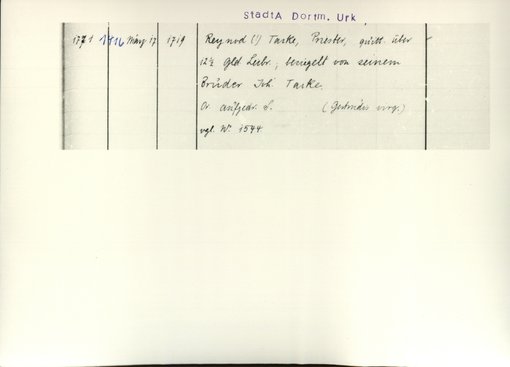 StadtA Dortm. Urk
1771 1416 März 17 1719 Reynod (!) Taske, Priester, quitt. über
12½ Gld Leibr., besiegelt von seinem
Bruder Joh. Taske.
Or. aufgedr. S. (Gertrudis virg.)
vgl. Nr 1544.